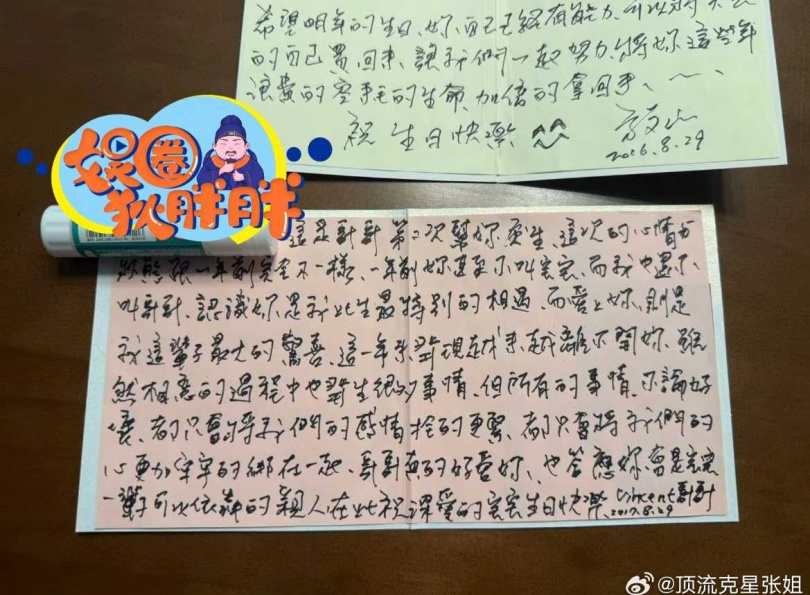 希望明年的生日、妳自己已經有能力、可以將失去
的自己買回來、讓我們一起努力、將妳這些年
浪費的空乏的生命、加倍的拿回來、
祝生日快樂
2016.8.29
娱圈
狄胖胖
這是哥哥第二次幫妳慶生、這次的心情與
狀態跟一年前完全不一樣、一年前妳甚至不叫宝宝、而我也還不
叫哥哥、認識妳是我此生最特別的相遇、而愛上妳、則是
我這輩子最大的驚喜、這一年來發現越來越離不開妳、雖
然相戀的過程中也發生很多事情、但所有的事情、不論好
壞、都只會將我們的感情拴的更緊、都只會將我們的
心更加牢牢的綁在一起、哥哥真的好愛妳、也答應妳、會是宝宝
一輩子可以依靠的親人在此祝課愛的宝宝生日快樂、Vincent哥哥
2017.8.29
@顶流克星张姐